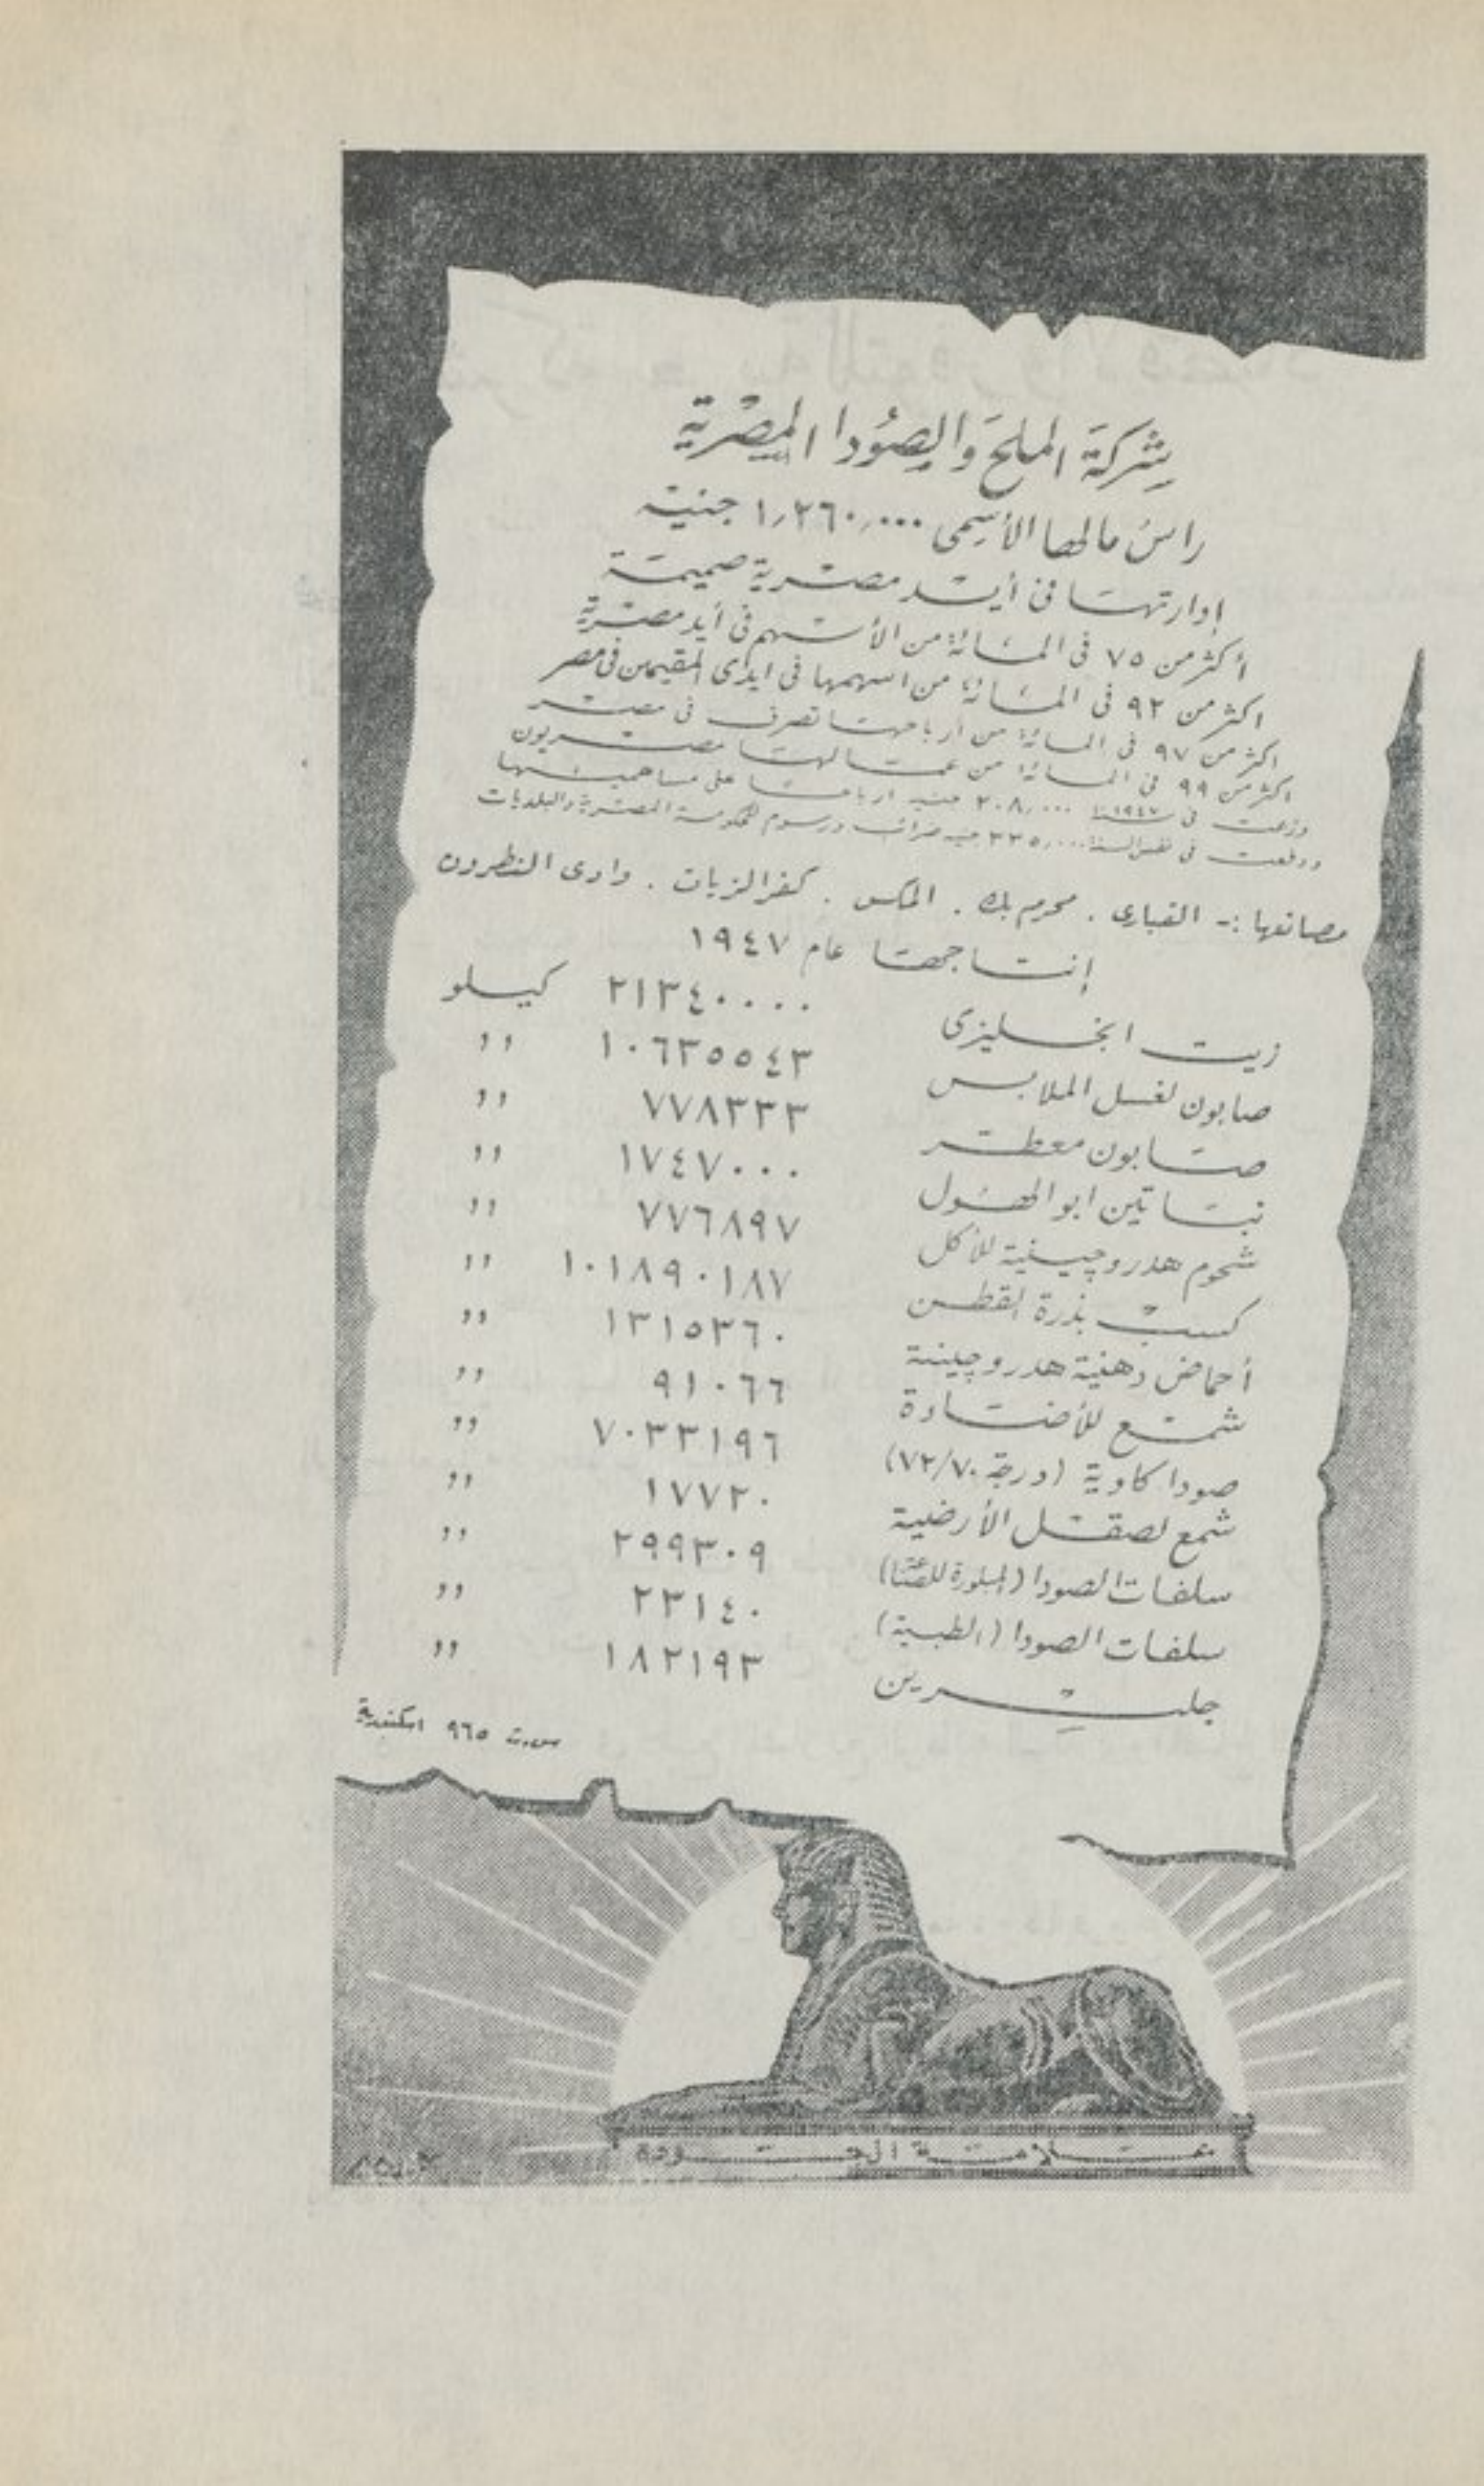 شركة الملح والصودا المصرية
راس مالها الأسمى ١٫٢٦٠٫٠٠٠ جنيه
إدارتها فى أيد مصرية صميمة
أكثر من ٧٥ فى المائة من الأسهم فى أيد مصرية
اكثر من ٩٢ فى المائة من اسهمها فى ايدى المقيمين فى مصر
اكثر من ٩٧ فى المائة من ارباحها تصرف فى مصر
اكثر من ٩٩ فى المائة من عمالها مصريون
وزعت فى سنة ١٩٤٧ ٢٠٨٫٠٠٠ جنيه ارباحا على مساهميها
ودفعت فى نفس السنة ٣٣٥٫٠٠٠ جنيه ضرائب ورسوم للحكومة المصرية والبلديات
مصانعها :- القبارى . محرم بك . المكس . كفر الزيات . وادى النطرون
إنتاجها عام ١٩٤٧
زيت انجليزى ٢١٣٤٠٠٠٠ كيلو
صابون لغسل الملابس ١٠٦٣٥٥٤٣ ,,
صابون معطر ٧٧٨٣٣٣ ,,
نباتين ابو الهول ١٧٤٧٠٠٠ ,,
شحوم هدروچينية للأكل ٧٧٦٨٩٧ ,,
كسب بذرة القطن ١٠١٨٩٠١٨٧ ,,
أحماض دهنية هدروچينية ١٣١٥٣٦٠ ,,
شمع للأضاءة ٩١٠٦٦ ,,
صودا كاوية (درجة ٧٢/٧٠) ٧٠٣٣١٩٦ ,,
شمع لصقل الأرضية ١٧٧٢٠ ,,
سلفات الصودا (المبلورة للصناعة) ٢٩٩٣٠٩ ,,
سلفات الصودا (الطبية) ٢٣١٤٠ ,,
جلسرين ١٨٢١٩٣ ,,
س.ت ٩٦٥ اسكندرية
علامة الجودة